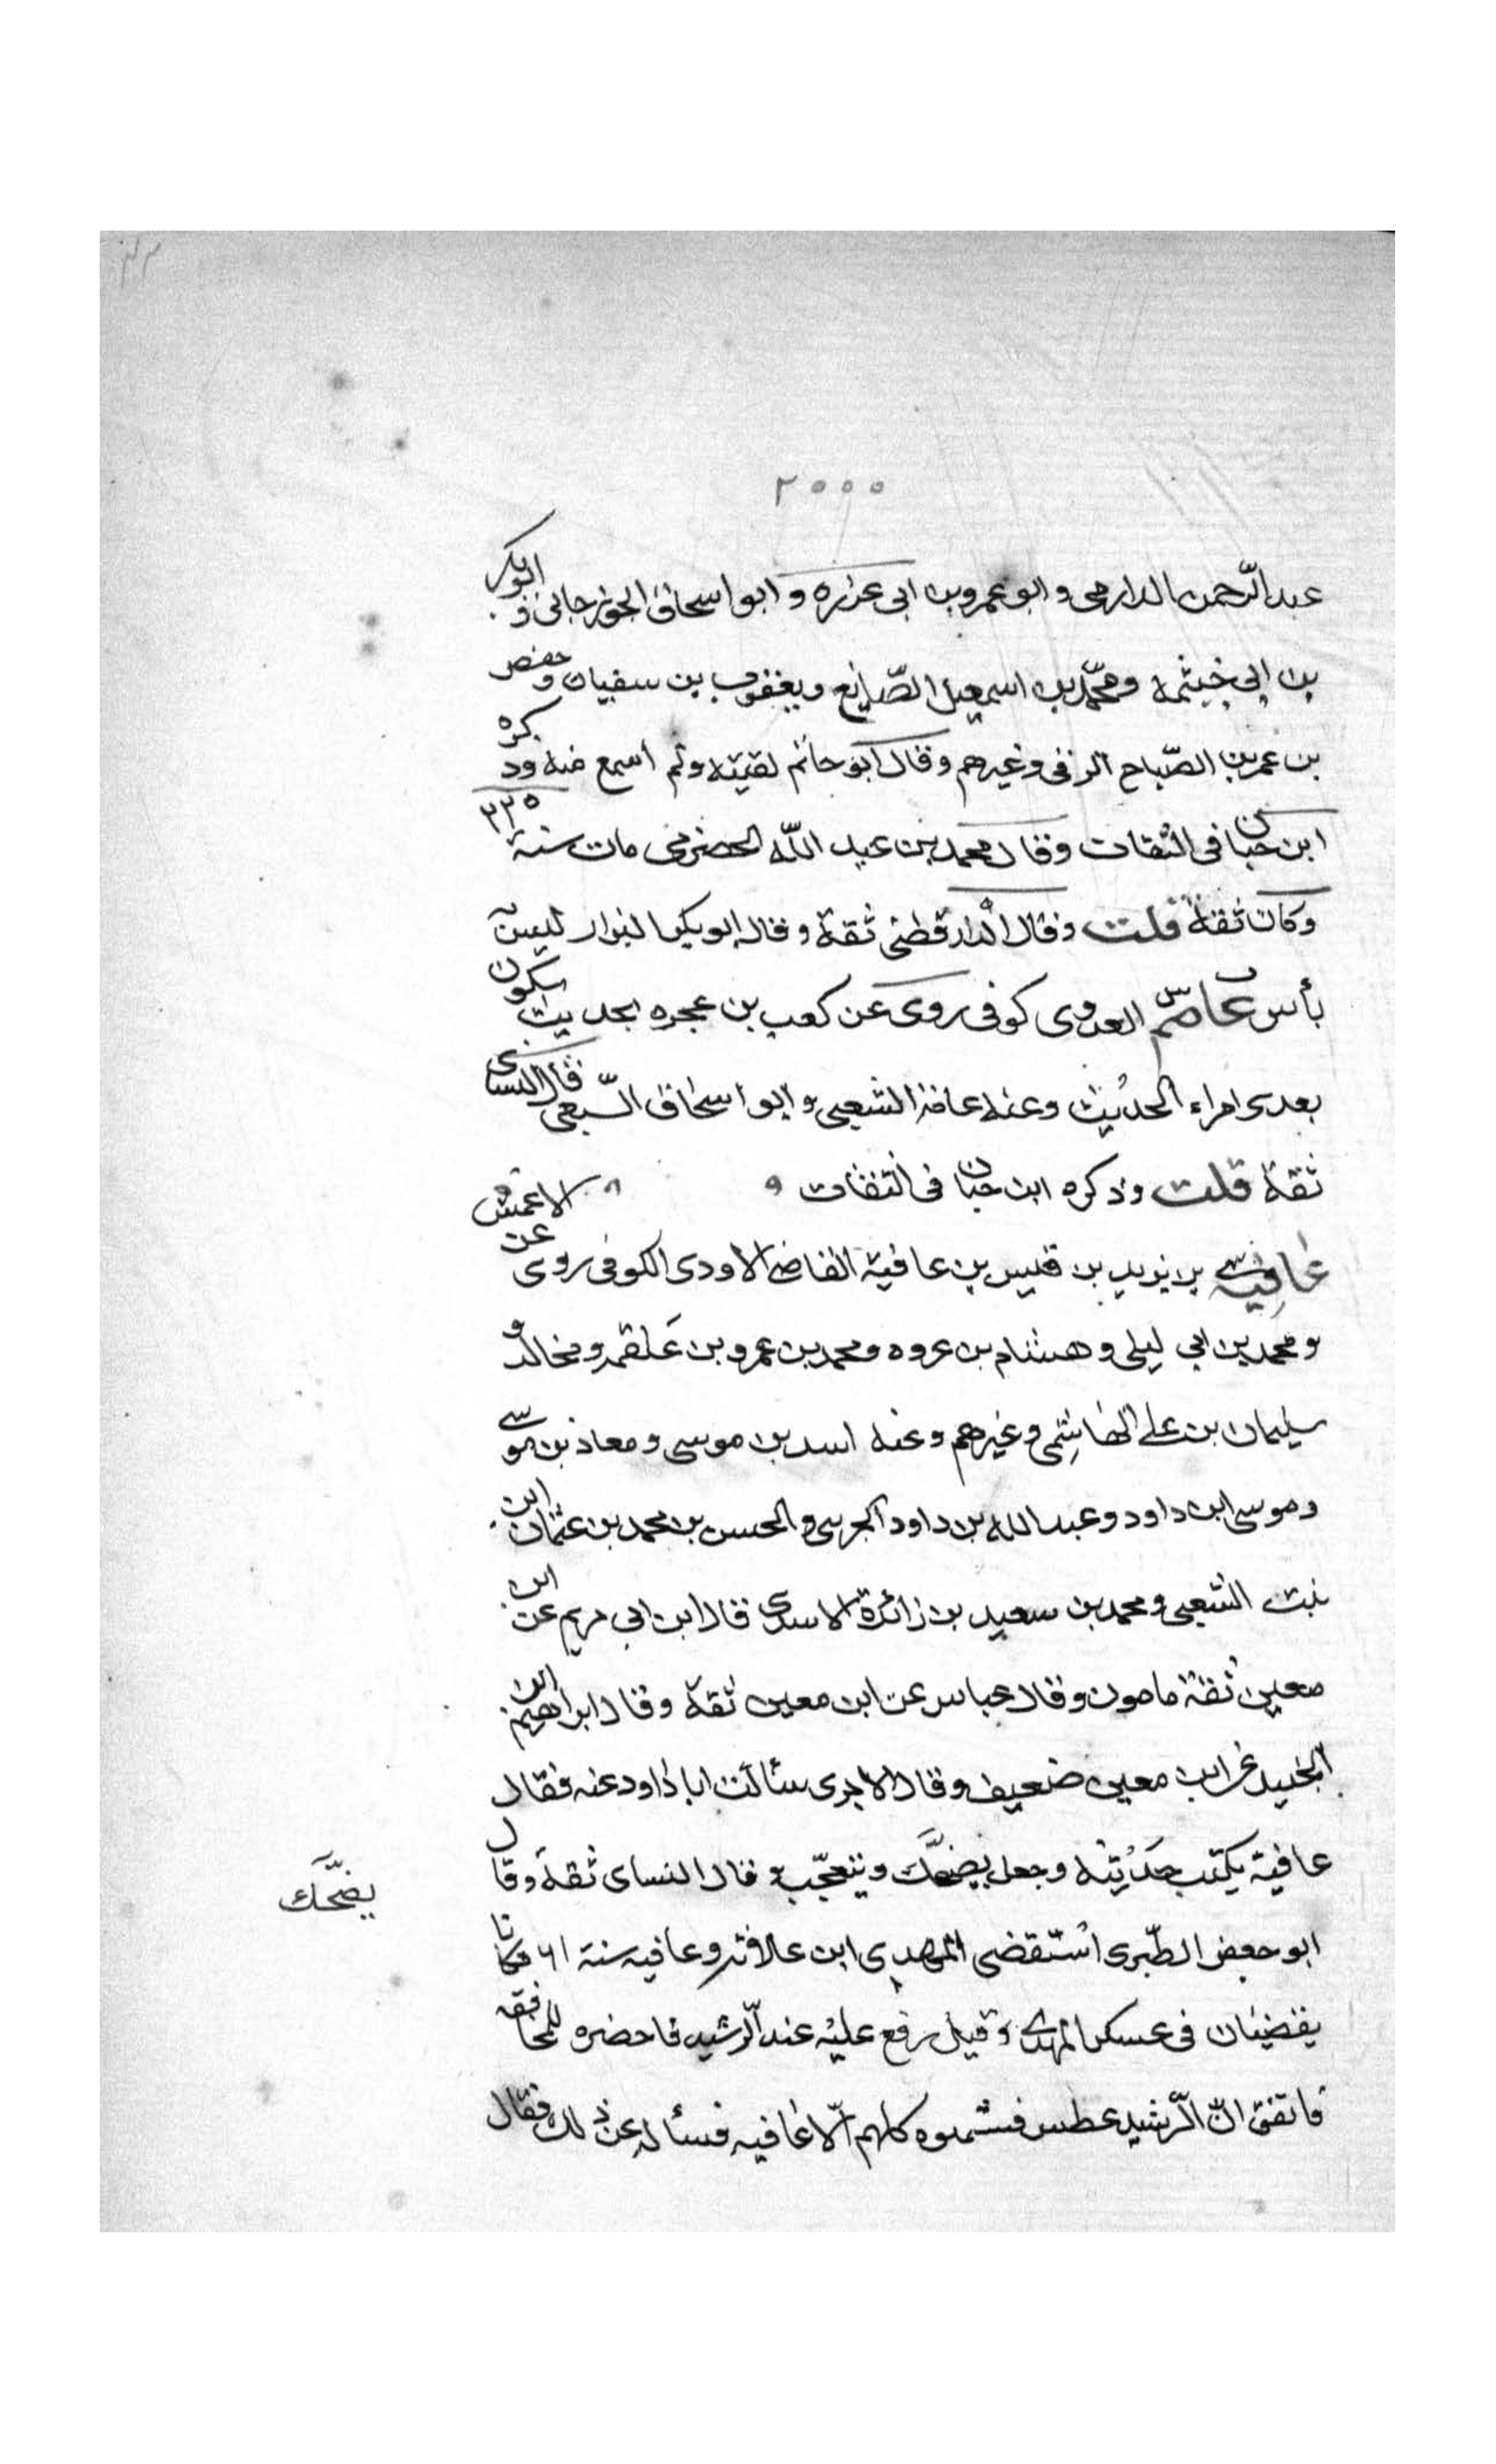 ٢٠٠٠
عبد الرحمن الدارمى و ابو عمرو بن ابى عزره و ابو اسحاق الجوزجانى و ابو بكر
بن ابى خيثمه ومحمد بن اسمعيل الصّايغ ويعقوب بن سفيان و حفص
بن عمر بن الصّباح الرقى وغيرهم وقال ابو حاتم لقيته ولم اسمع منه وذكره
ابن حبان فى الثقات وقال محمد بن عبد اللّه الحضرمى مات سنة ٢٢٥
وكان ثقة قلت وقال الدارقطنى ثقة وقال ابو بكر البزار ليس
بأس عاصم العدوى كوفى روى عن كعب بن عجره بحديث سيكون
بعدى امراء الحديث وعنه عامر الشعبى و ابو اسحاق السّبيعى قال النساى
ثقة قلت وذكره ابن حبان فى الثقات
عافية بن يزيد بن قيس بن عافية القاضى الاودى الكوفى روى عن الاعمش
و محمد بن ابى ليلى و هشام بن عروه و محمد بن عمرو بن علقمه و مخالد و
سليمان بن على الهاشمى وغيرهم وعنه اسد بن موسى و معاذ بن موسى
وموسى ابن داود وعبد الله بن داود الخريبى و الحسن بن محمد بن عثمان ابن
بنت الشعبى و محمد بن سعيد بن زائدة الاسدى قال ابن ابى مريم عن ابن
معين ثقة مامون وقال عباس عن ابن معين ثقة وقال ابراهيم ابن
الجنيد عن ابن معين ضعيف وقال الاجرى سألت ابا داود عنه فقال
عافية يكتب حديثه وجعل يضحك ويتعجّب و قال النساى ثقة وقال
يضحّك
ابو جعفر الطّبرى استقضى المهدى ابن علاثه وعافيه سنة ١٦١ فكانا
يقضيان فى عسكر المهدى وقيل رفع عليه عند الرّشيد فاحضره للمحاققه
فاتفق انّ الرّشيد عطس فشمتوه كلهم الّا عافيه فسأله عن ذلك فقال